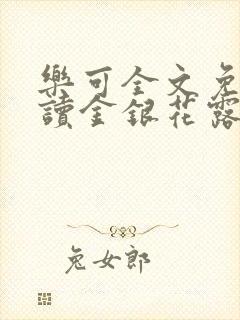 樂可全文免
讀金銀花露
兔女郎